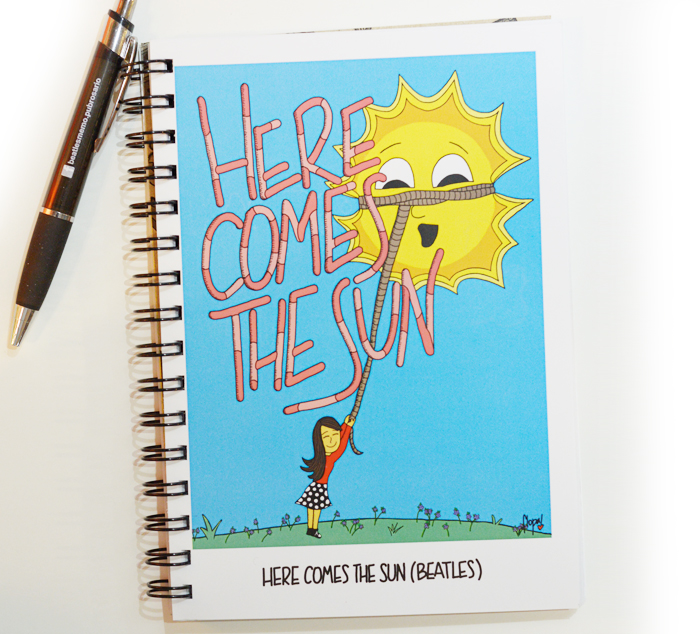 HERE
COMES
THE SUN
HERE COMES THE SUN (BEATLES)
beatlesmemo.pubrosario